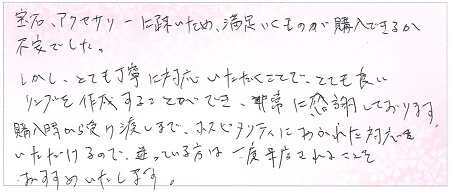 宝石、アクセサリーに疎いため、満足いくものが購入できるか
不安でした。
しかし、とても丁寧に対応いただくことで、とても良い
リングを作成することができ、非常に感謝しております。
購入時から受け渡しまで、ホスピタリティにあふれた対応を
いただけるので、迷っている方は一度来店されることを
おすすめいたします。